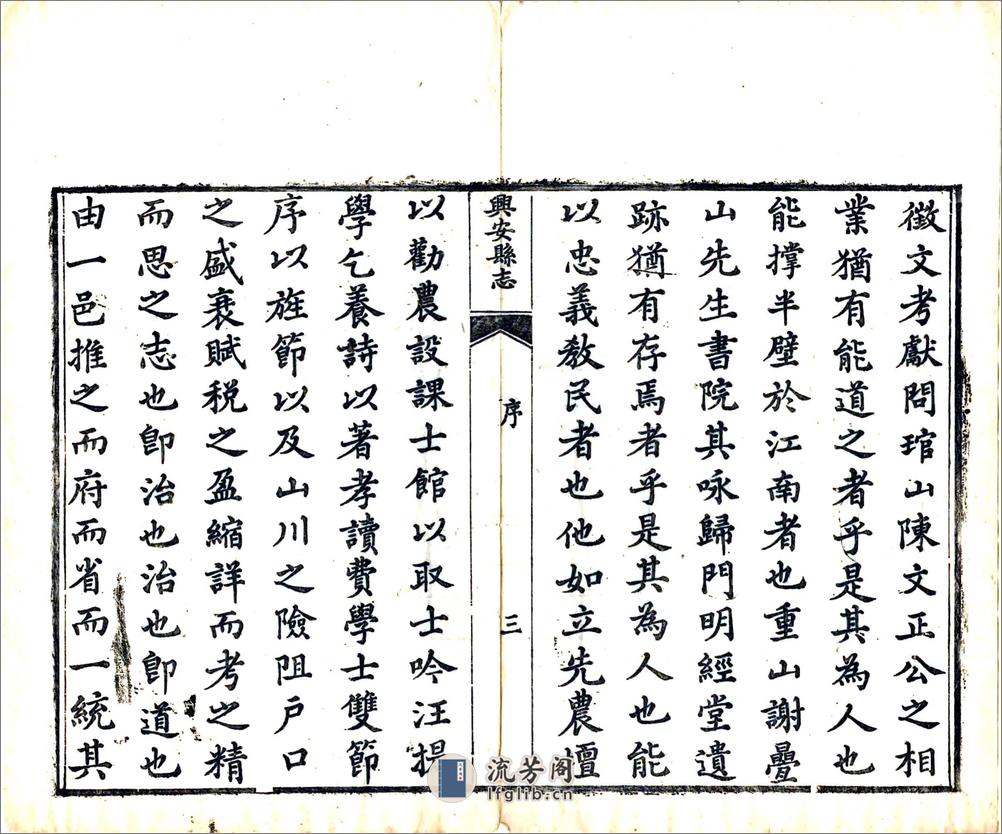 徵文考獻問琯山陳文正公之相
業猶有能道之者乎是其為人也
能撑半壁於江南者也重山謝疊
山先生書院其咏歸門明經堂遺
跡猶有存焉者乎是其為人也能
以忠義教民者也他如立先農壇
興安縣志
序
三
以勸農設課士館以取士吟汪揚
學乞養詩以著孝讀費學士雙節
序以旌節以及山川之險阻戶口
之盛衰賦稅之盈縮詳而考之精
而思之志也卽治也治也卽道也
由一邑推之而府而省而一統其
流芳阁
lfglib.cn